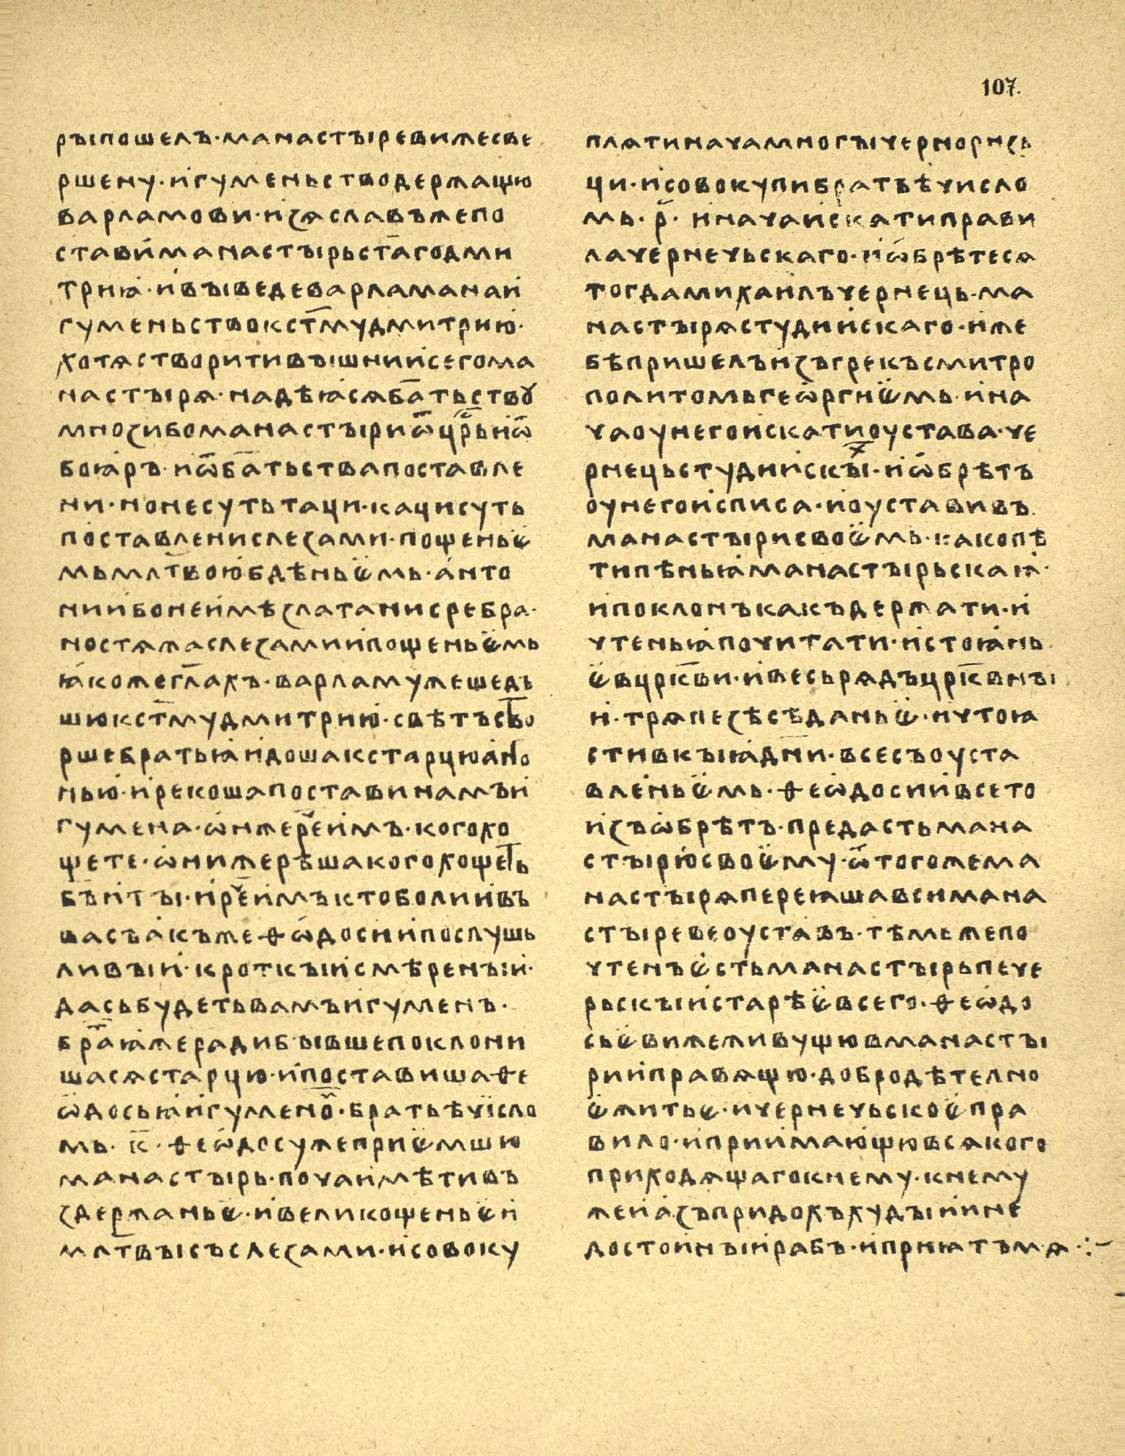 107.
рыпошелъ·манастыревижесве
ршену·игуменьстводержащю
варламови·изѧславъжепо
стави́манастырьст҃агодми
триꙗ·и́въıведеварламанаи
гуменьствокст҃мудмитрию·
хотѧстворитивъıшниисегома
настырѧ·надѣꙗсѧба҃тьствꙋ
мнозибоманастыриѿцр҃ьиѿ
боꙗръ·иѿба҃тьствапоставле
ни·нонесутьтаци·кацисуть
поставленислезами·пощеньѥ
мьмлт҃воюбдѣньѥмь·анто
ниибонеимѣзлатанисребра·
ностѧжаслезамиипощеньѥмь
ꙗкожегл҃ахъ·варламужешедъ
шюкст҃мудмитрию·свѣтъство
ршебратьꙗидошакстарцюанто
нью·ирекошапоставинамъи
гумена·ѡнжереч҃имъ·когохо
щете·ѡнижерѣшакогохощеть
б҃ъиты·иреч҃имъктоболиивъ
васъакъжеѳеѡдосииипослушь
ливыи·кроткыисмѣреныи·
дасьбудетьвамъигуменъ·
бра҃ꙗжерадибывшепоклони
шасѧстарцю·ипоставишаѳе
ѡдосьꙗигумено҃·братьѣчисло
мь·к҃·ѳеѡдосужеприѥмшю
манастырь·почаимѣтивъ
здержаньѥ·ивеликощеньѥи
млт҃выисъслезами·исовоку
плѧтиначамногычерноризь
ци·исовокупибратьѣчисло
мь·р҃·иначаискатиправи
лачернечьскаго·иѡбрѣтесѧ
тогдамихаилъчернець·ма
настырѧстудиискаго·иже
бѣпришелъизъгрекъсмитро
политомьгеѡргиѥмь·ина
чаоунегоискатиоустава·че
рнецьстудиискыⷯ·иѡбрѣтъ
оунегоисписа·иоуставивъ
манастырисвоѥмь·какопѣ
типѣньꙗманастырьскаꙗ·
ипоклонъкакъдержати·и
чтеньꙗпочитати·истоꙗнь
ѥвцрк҃ви·ивесьрѧдъцрк҃вны
и·трѧпезѣсѣданьѥ·ичтоꙗ
стивкыꙗдн҃и·всесъоуста
вленьѥмь·ѳеѡдосиивсето
изъѡбрѣтъ·предастьмана
стырюсвоѥму·ѿтогожема
настырѧпереꙗшавсимана
стыревеоуставъ·тѣмьжепо
чтенъѥстьманастырьпече
рьскыистарѣѥвсего·ѳеѡдо
сьѥвижеживущювманасты
риииправѧщю·добродѣтелно
ѥжитьѥ·ичернечьскоѥпра
вило·иприимающювсѧкого
приходѧщагокнему·кнему
жеиазъпридохъхудыиине
достоиныирабъ·иприꙗтъмѧ·:~